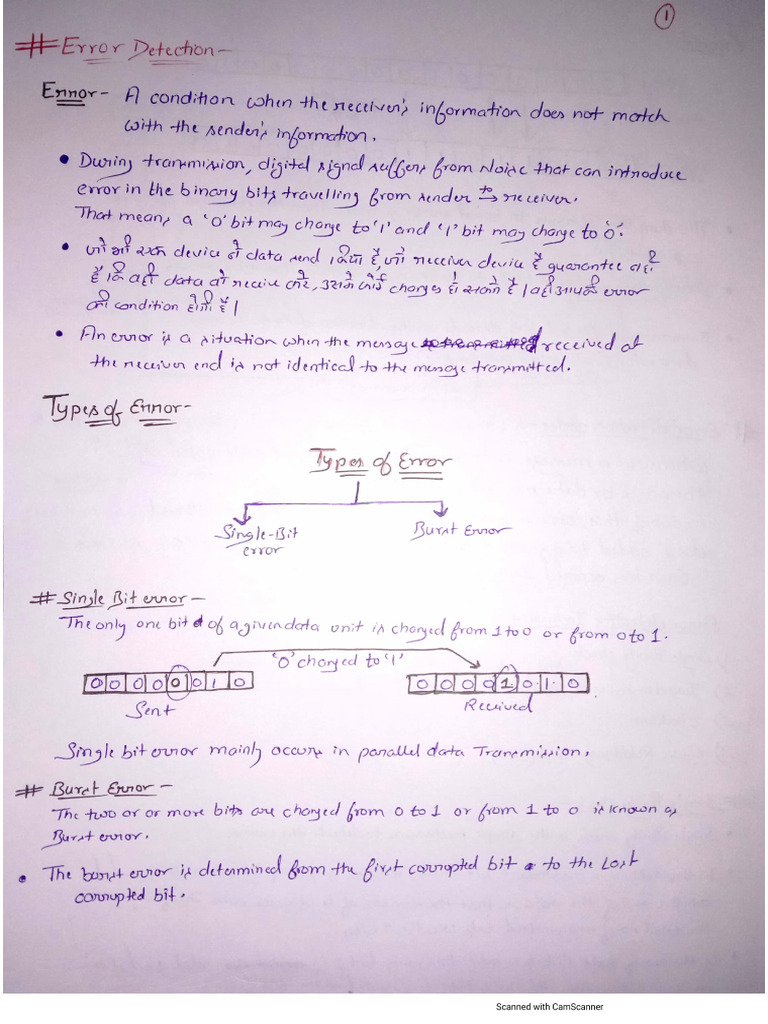 1
# Error Detection -
Error - A condition when the receiver's information does not match
with the sender's information.
• During transmission, digital signal suffers from Noise that can introduce
error in the binary bits travelling from sender to → receiver.
That means a '0' bit may change to '1' and '1' bit may change to '0'.
• जो भी एक device ने data send किया है जो receiver device है guarantee नहीं
है कि वही data को receive करे, उसमे कोई changes हो सकते है। वही आपकी error
की condition होती है।
• An error is a situation when the message received at
the receiver end is not identical to the message transmitted.
Types of Error -
Types of Error
Single-Bit
error
Burst Error
# Single Bit error -
The only one bit of a given data unit is changed from 1 to 0 or from 0 to 1.
'0' changed to '1'
0 0 0 0 0 0 1 0
0 0 0 0 1 0 1 0
Sent
Received
Single bit error mainly occurs in parallel data Transmission.
# Burst Error -
The two or or more bits are changed from 0 to 1 or from 1 to 0 is known as
Burst error.
• The burst error is determined from the first corrupted bit to the Last
corrupted bit.
Scanned with CamScanner